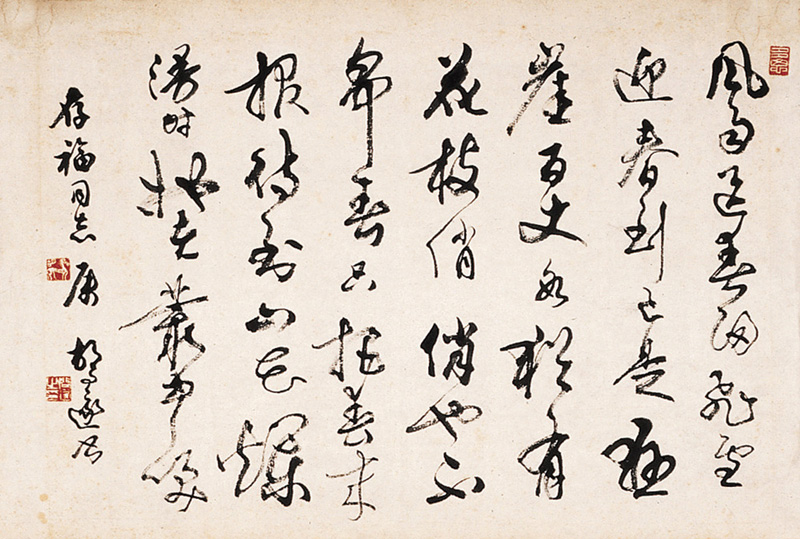 風雨送春歸飛雪
迎春到已是懸
崖百丈冰猶有
花枝俏俏也不
爭春只把春來
報待到山花爛
漫时她在叢中笑
存福同志属